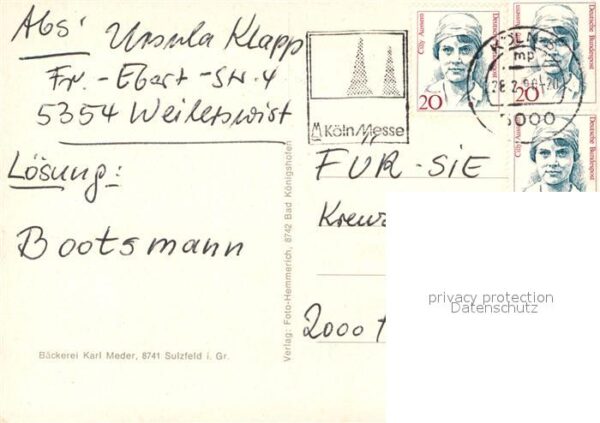 Abs' Ursula Klapp
Fr.-Ebert-Str. 4
5354 Weilerswist
Lösung:
Bootsmann
KölnMesse
Cilly Aussem
Deutsche Bundespost
20
Cilly Aussem
Deutsche Bundespost
20
Cilly Aussem
Deutsche Bundespost
KÖLN
mp
5000
FÜR-SIE
2000
Verlag: Foto-Hemmerich, 8742 Bad Königshofen
Bäckerei Karl Meder, 8741 Sulzfeld i. Gr.
privacy protection
Datenschutz